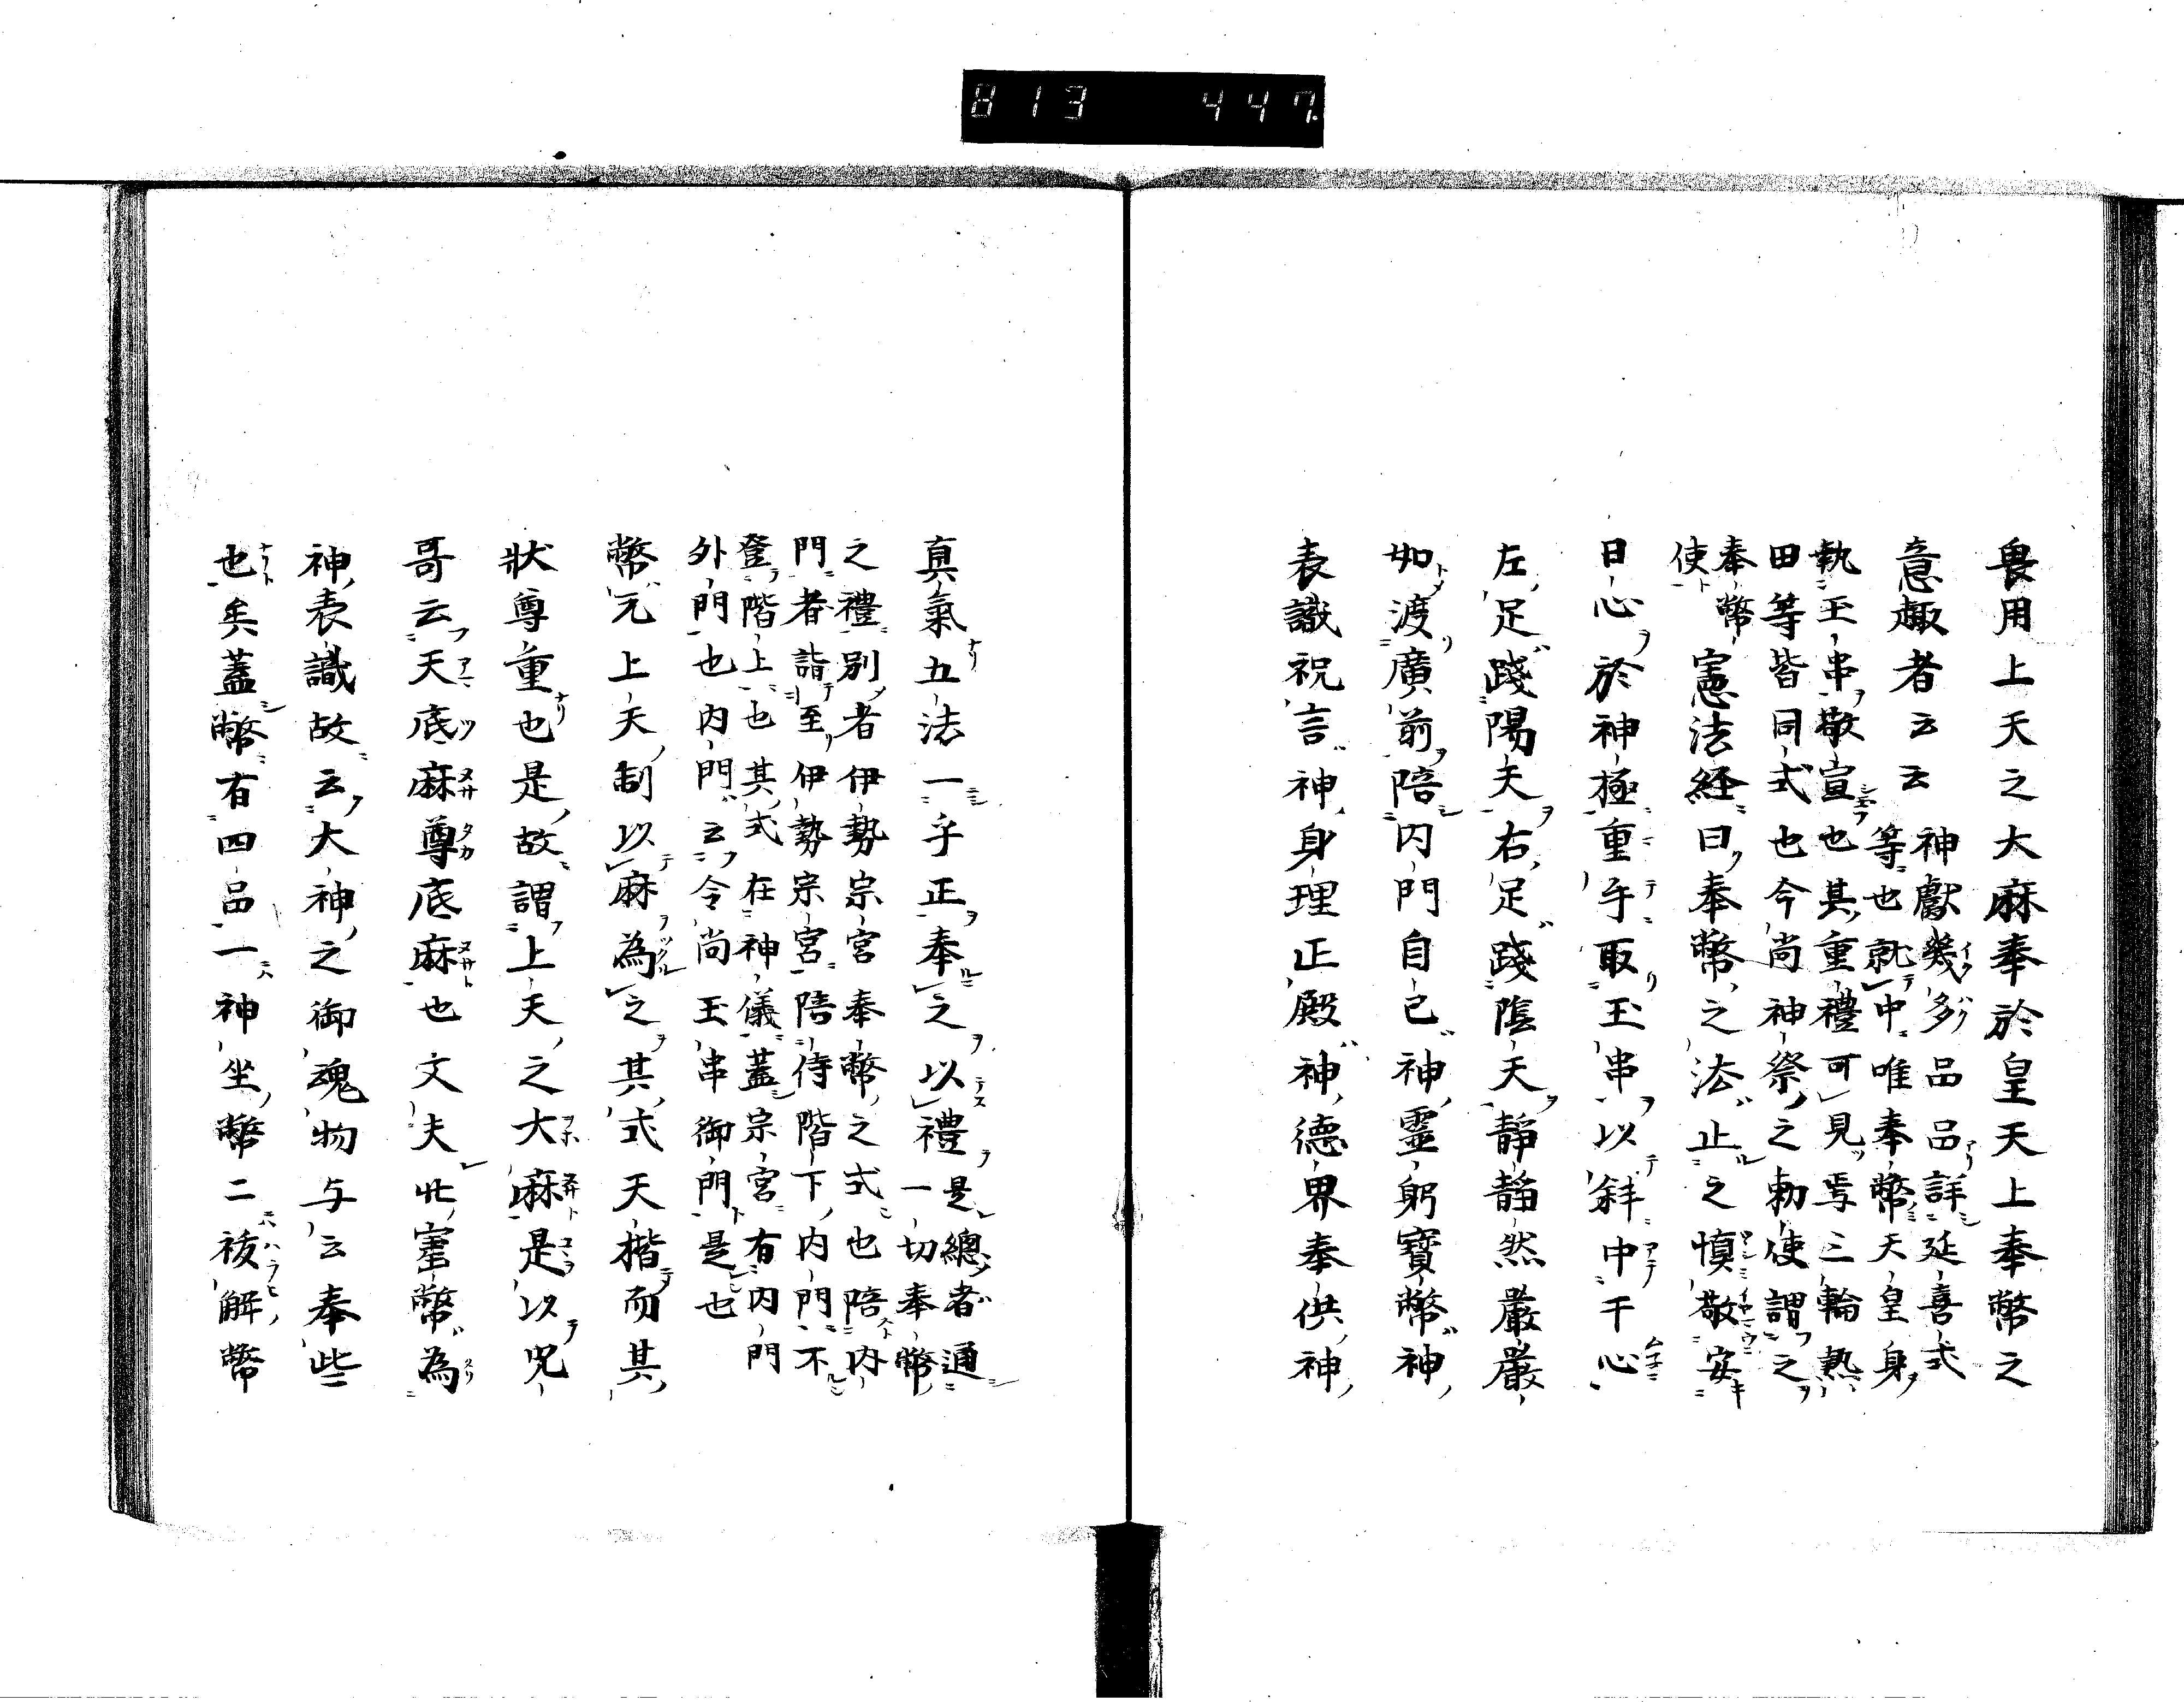 813 447.
畏用上天之大麻奉於皇天上奉幣之
意趣者云云 神獻幾多品品詳延喜式
等也就中唯奉幣天皇身
執玉串敬宣也其重禮可見焉三輪熱
田等皆同式也今尚神祭之勅使謂之
奉幣
使 憲法経曰奉幣之法止之慎敬安
日心於神極重乎取玉串以斜中干心
左足踐陽天右足踐陰天靜靜然嚴嚴
如渡廣前陪内門自已神霊躬寶幣神
表識祝言神身理正殿神德界奉供神
真氣五法一乎正奉之以禮 是總者通
一切奉幣
之禮別者伊勢宗宮奉幣之式也陪内
門者詣至伊勢宗宮陪侍階下内門不
登階上也其式在神儀蓋宗宮有内門
外門也内門云令尚玉串御門是也
幣元上天制以麻為之其式天楷而其
狀尊重也是故謂上天之大麻是以咒
哥云天底麻尊底麻也文夫此寶幣為
神表識故云大神之御魂物与云奉些
也矣蓋幣有四品一神坐幣二祓解幣